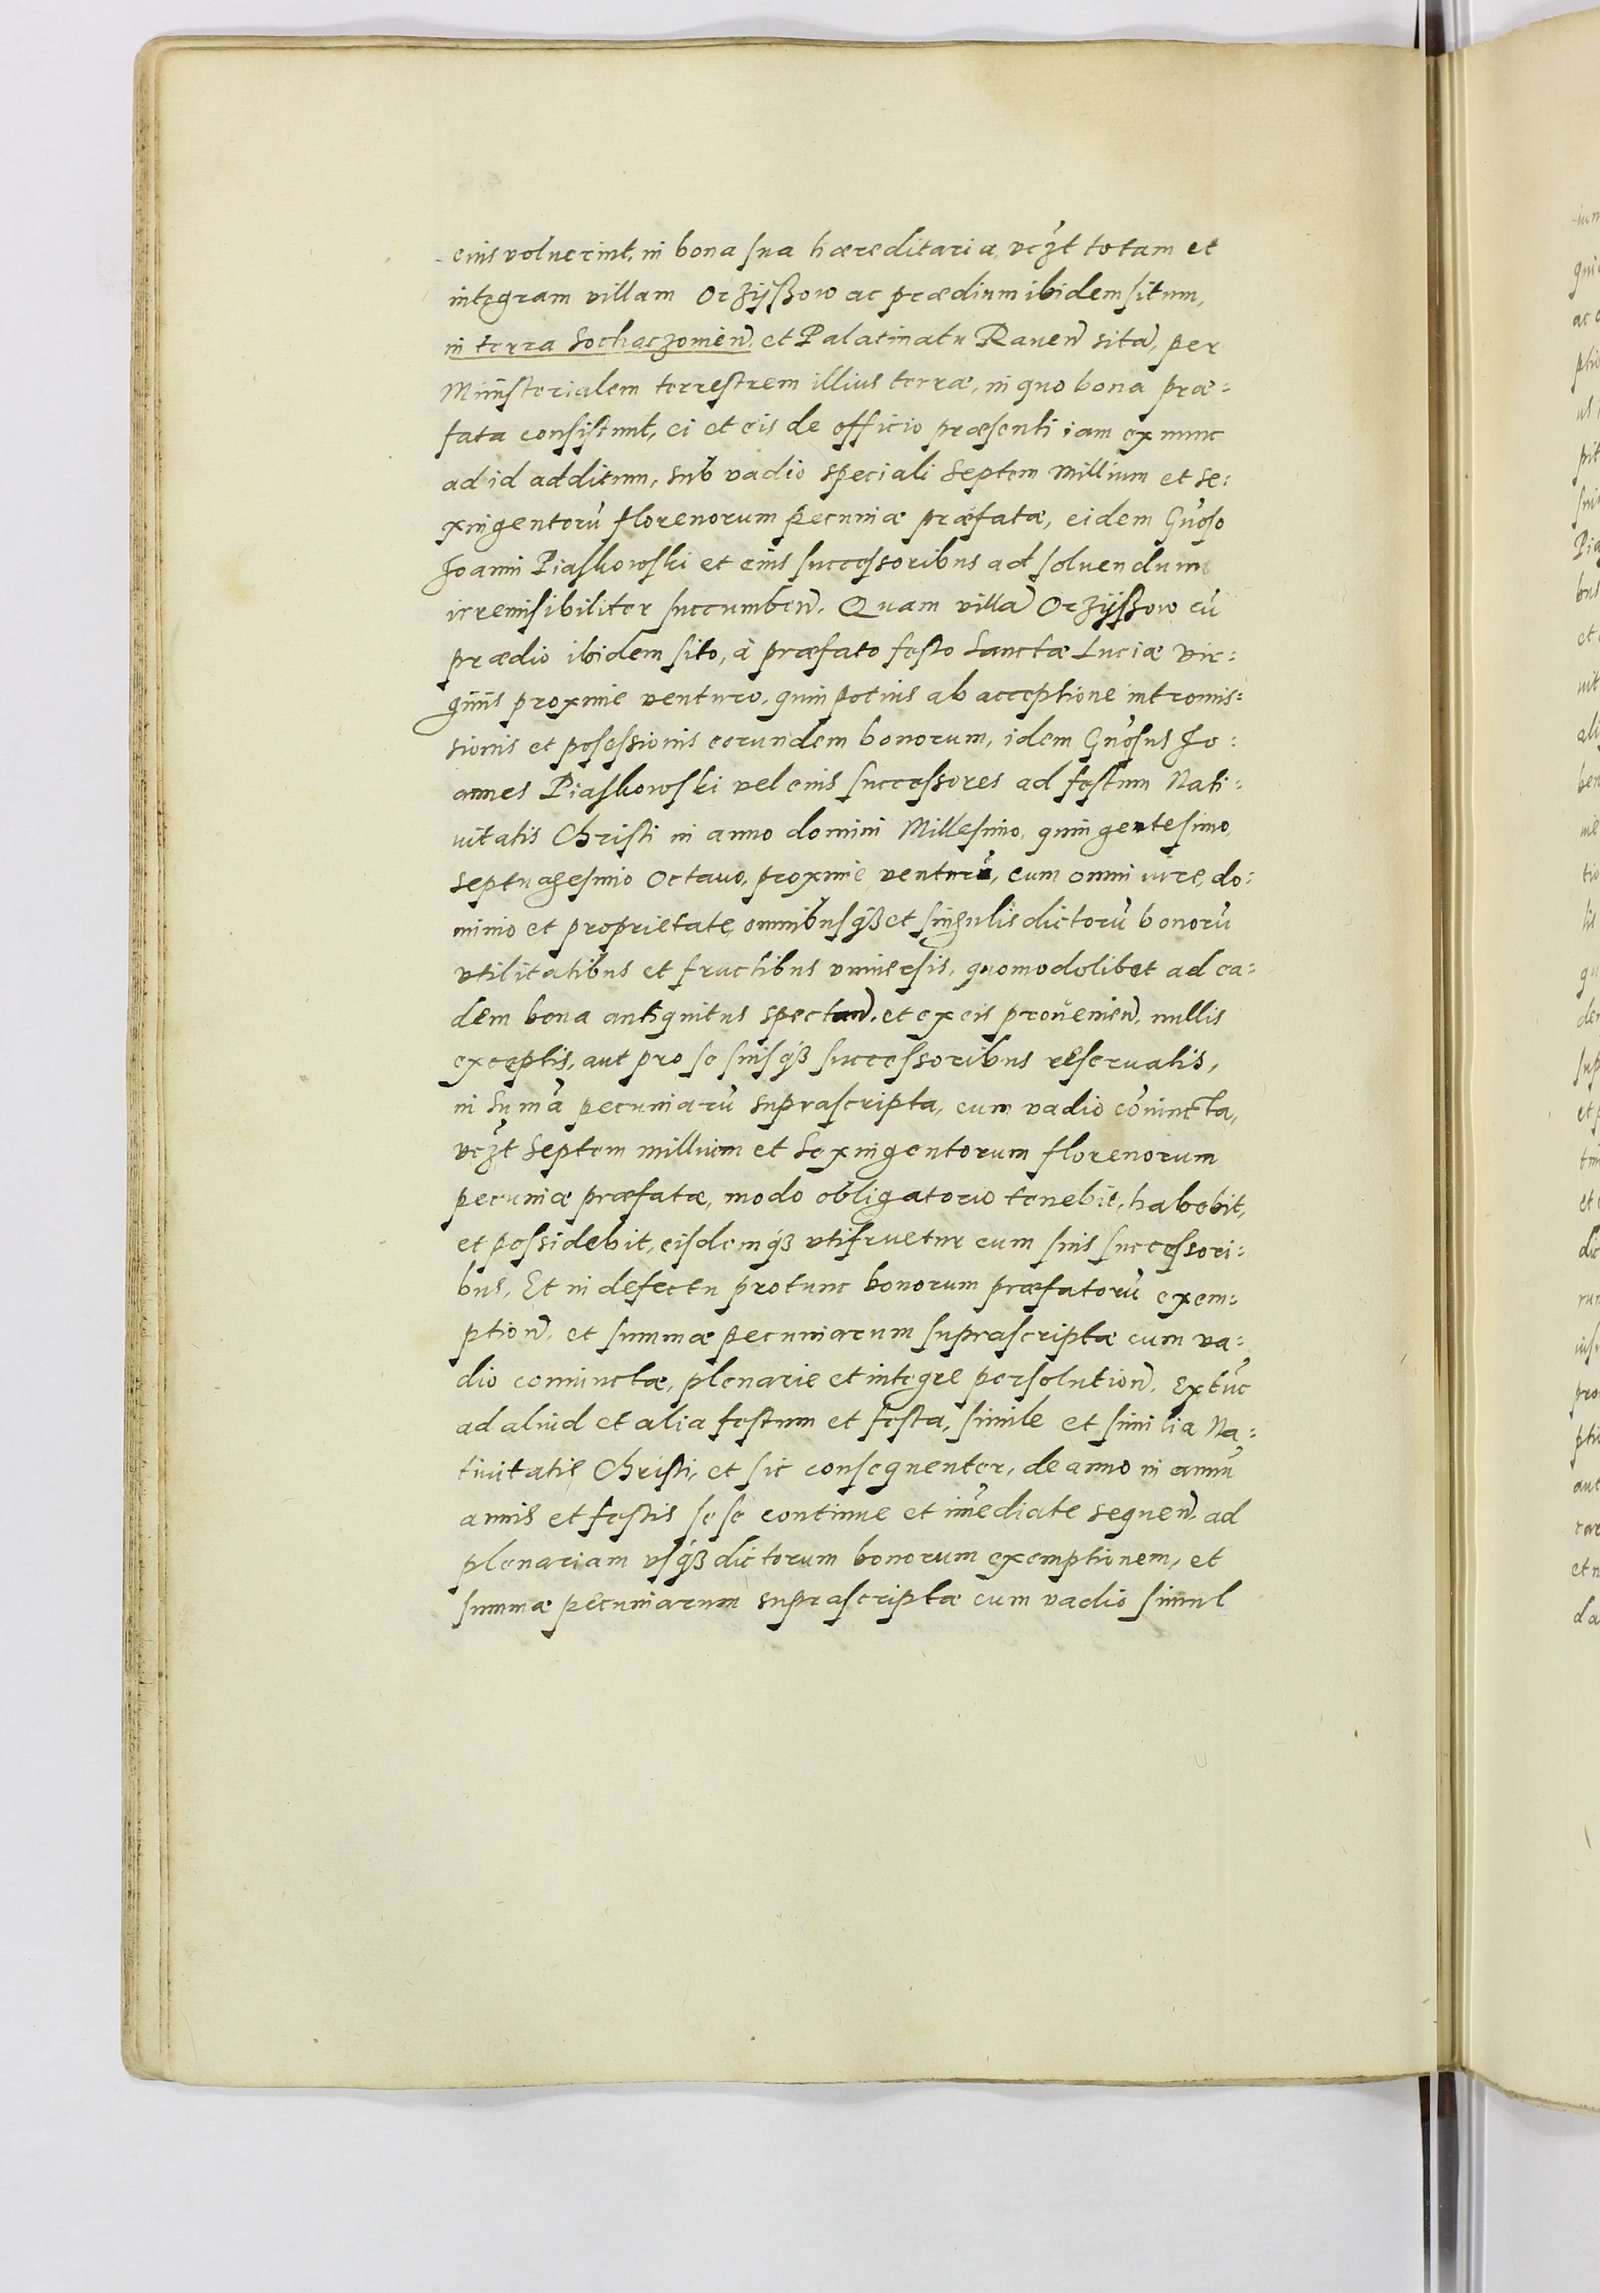 eius voluerint, in bona sua hæreditaria, vczt totam et
integram villam Orzÿßow ac prædium ibidem situm,
in terra Sochaczouien̄. et Palatinatu Rauen̄ sita, per
Ministerialem terrestrem illius terræ, in quo bona præ=
fata consistunt, ei et eis de officio præsenti iam ex nunc
ad id additum, sub vadio speciali Septem Millium et se=
xingentorū florenorum pecuniæ præfatæ, eidem Gn̄oso
Joanni Piaskowski et eius successoribus ad soluendum
irremisibiliter succumben̄. Quam villā Orzÿßow cū
prædio ibidem sito, à præfato festo Sanctæ Luciæ Vir=
ginis proxime venturo, quin potius ab acceptione intromis=
sionis et possessionis eorundem bonorum, idem Gn̄osus Jo=
annes Piaskowski vel eius successores ad festum Nati=
uitatis Christi in anno domini Millesimo, quingentesimo,
Septuagesimo Octauo, proxime venturū, cum omni iure, do=
minio et proprietate, omnibusqȝ et singulis dictorū bonorū
vtilitatibus et fructibus vniuersis, quomodolibet ad ea=
dem bona antiquitus spectan̄. et ex eis prouenien̄. nullis
exceptis, aut pro se suisqȝ successoribus reseruatis,
in Sum̄a pecuniarū suprascripta, cum vadio cōiuncta,
vczt Septem millium et Sexingentorum florenorum
pecuniæ præfatæ, modo obligatorio tenebit, habebit,
et possidebit, eisdemqȝ vtifruetur cum suis successori=
bus, Et in defectu protunc bonorum præfatorū exem=
ption̄. et summæ pecuniarum suprascriptæ cum va=
dio coniunctæ, plenarie et integre persolution̄. Extūc
ad aliud et alia festum et festa, simile et similia Na=
tiuitatis Christi, et sic consequenter, de anno in annū
annis et festis sese continue et im̄ediate sequen̄ ad
plenariam vsqȝ dictorum bonorum exemptionem, et
summæ pecuniarum suprascriptæ cum vadio simul